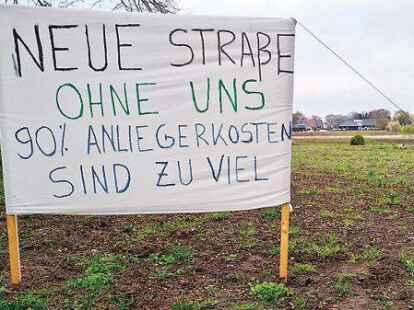 NEUE STRAßE
OHNE UNS
90% ANLIEGERKOSTEN
SIND ZU VIEL